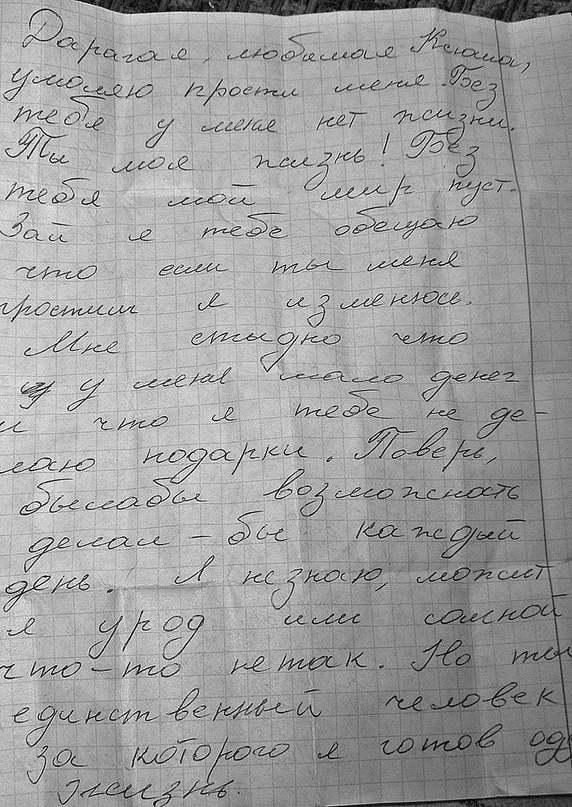 Дарагая, любимая Ксюша,
умоляю прости меня. Без
тебя у меня нет жизни.
Ты моя жизнь! Без
тебя мой мир пуст.
Зай я тебе обещаю
что если ты меня
простиш я изменюсь.
Мне стыдно что
у меня мало денег
и что я тебе не де-
лаю подарки. Поверь,
былабы возможность
делал-бы каждый
день. Я незнаю, может
я урод или сомной
что-то нетак. Но ты
единственный человек
за которого я готов
жизнь.